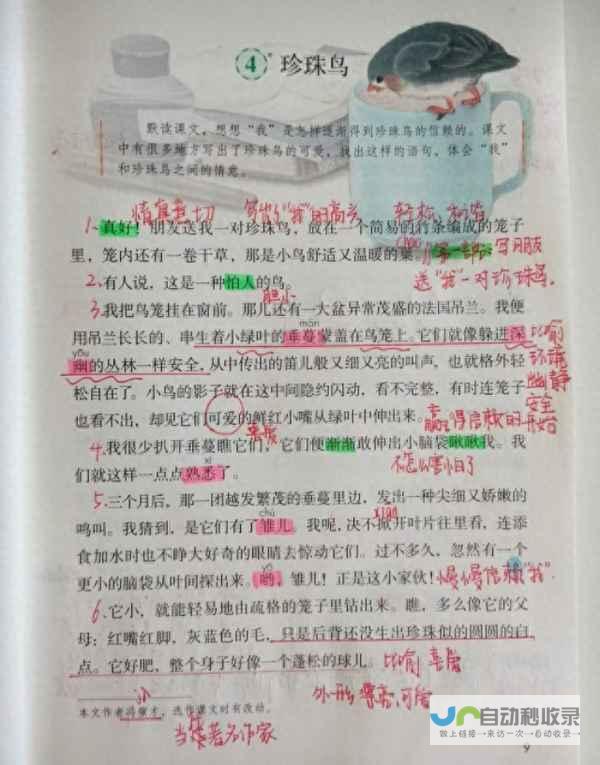 4 珍珠鸟
默读课文，想想“我”是怎样逐渐得到珍珠鸟的信赖的。课文
中有很多地方写出了珍珠鸟的可爱，找出这样的语句，体会“我”
和珍珠鸟之间的情意。
写出了“我”的高兴
1.真好！朋友送我一对珍珠鸟，放在一个简易的竹条编成的笼子
里，笼内还有一卷干草，那是小鸟舒适又温暖的巢。
写朋友
送“我”一对珍珠鸟.
2.有人说，这是一种怕人的鸟。
胆小
3.我把鸟笼挂在窗前。那儿还有一大盆异常茂盛的法国吊兰。我便
màn
用吊兰长长的、串生着小绿叶的垂蔓蒙盖在鸟笼上，它们就像躲进深
比喻
yōu
幽的丛林一样安全，从中传出的笛儿般又细又亮的叫声，也就格外轻
环境
幽静
松自在了。小鸟的影子就在这中间隐约闪动，看不完整，有时连笼子
安全
也看不出，却见它们可爱的鲜红小嘴从绿叶中伸出来。
开始
4.我很少扒开垂蔓瞧它们，它们便渐渐敢伸出小脑袋瞅瞅我。我
xī
们就这样一点点熟悉了。
不怎么害怕了
5.三个月后，那一团越发繁茂的垂蔓里边，发出一种尖细又娇嫩的
chú
鸣叫。我猜到，是它们有了雏儿。我呢，决不掀开叶片往里看，连添
食加水时也不睁大好奇的眼睛去惊动它们。过不多久，忽然有一个
yō
更小的脑袋从叶间探出来。哟，雏儿！正是这小家伙！
慢慢信赖“我”.
6.它小，就能轻易地由疏格的笼子里钻出来。瞧，多么像它的父
母：红嘴红脚，灰蓝色的毛，只是后背还没生出珍珠似的圆圆的白
点。它好肥，整个身子好像一个蓬松的球儿。
比喻
外形
可爱
本文作者冯骥才，选作课文时有改动。
著名作家
自动秒收录
做上链接→来访一次→自动收录
9